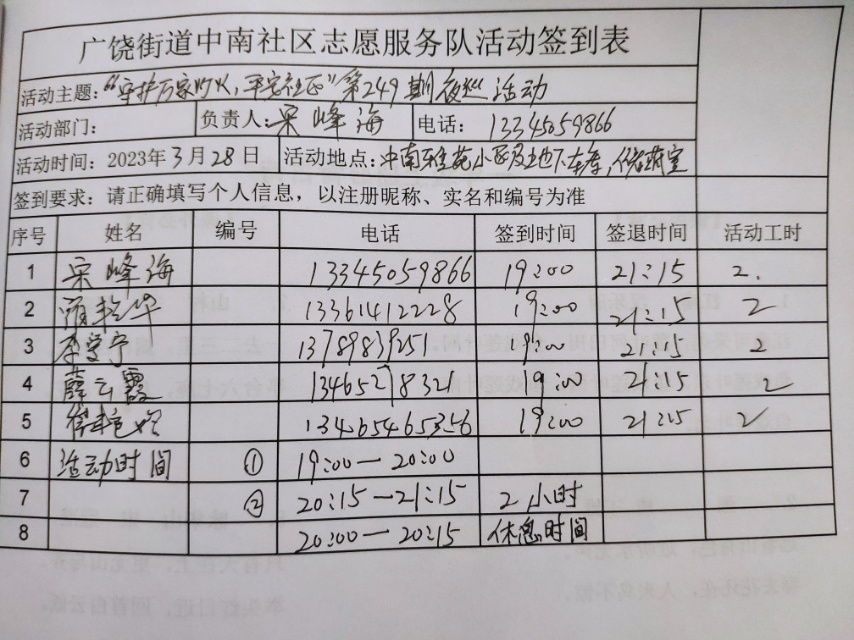 广饶街道中南社区志愿服务队活动签到表
活动主题：“守护万家灯火，平安社区”第249期夜巡活动
活动部门： 负责人：宋峰海 电话：13345059866
活动时间：2023年3月28日 活动地点：中南雅苑小区及地下车库，储藏室
签到要求：请正确填写个人信息，以注册昵称、实名和编号为准
序号 姓名 编号 电话 签到时间 签退时间 活动工时
1 宋峰海 13345059866 19:00 21:15 2.
2 13361412228 19:00 21:15 2
3 13789839251 19:00 21:15 2
4 薛云霞 13465278321 19:00 21:15 2
5 13465465356 19:00 21:15 2
6 活动时间 ① 19:00—20:00
7 ② 20:15—21:15 2小时
8 20:00—20:15 休息时间